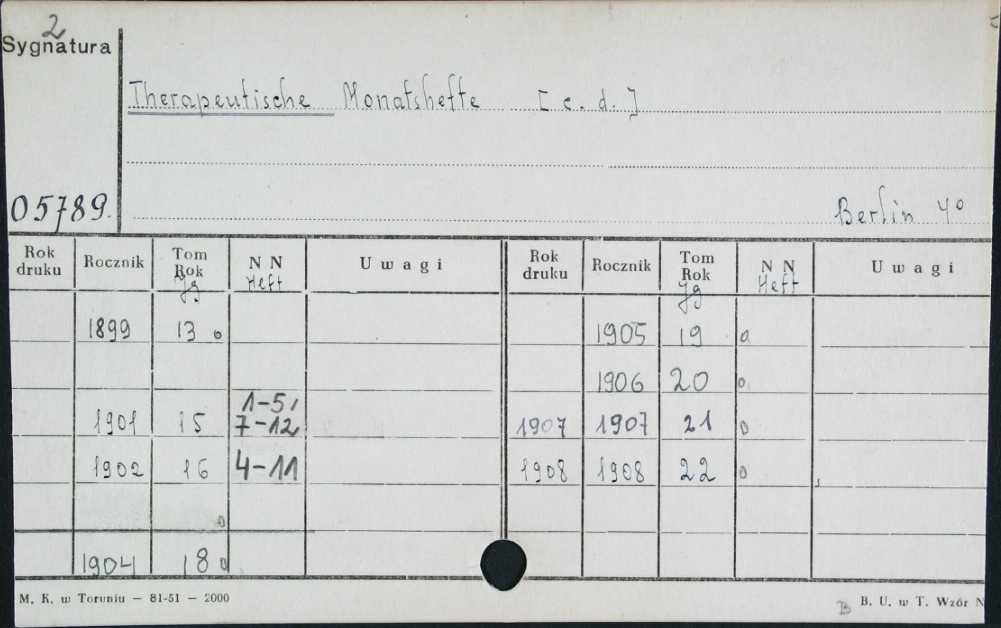 2
Sygnatura
Therapeutische Monatshefte [c. d.]
05789.
Berlin 4°
Rok druku Rocznik Tom Rok Jg N N Heft Uwagi Rok druku Rocznik Tom Rok Jg N N Heft Uwagi
1899 13 o 1905 19 o
1906 20 o
1901 15 1-5, 7-12 1907 1907 21 o
1902 16 4-11 1908 1908 22 o
o
1904 18 o
M. K. w Toruniu — 81-51 — 2000
B. U. w T. Wzór N